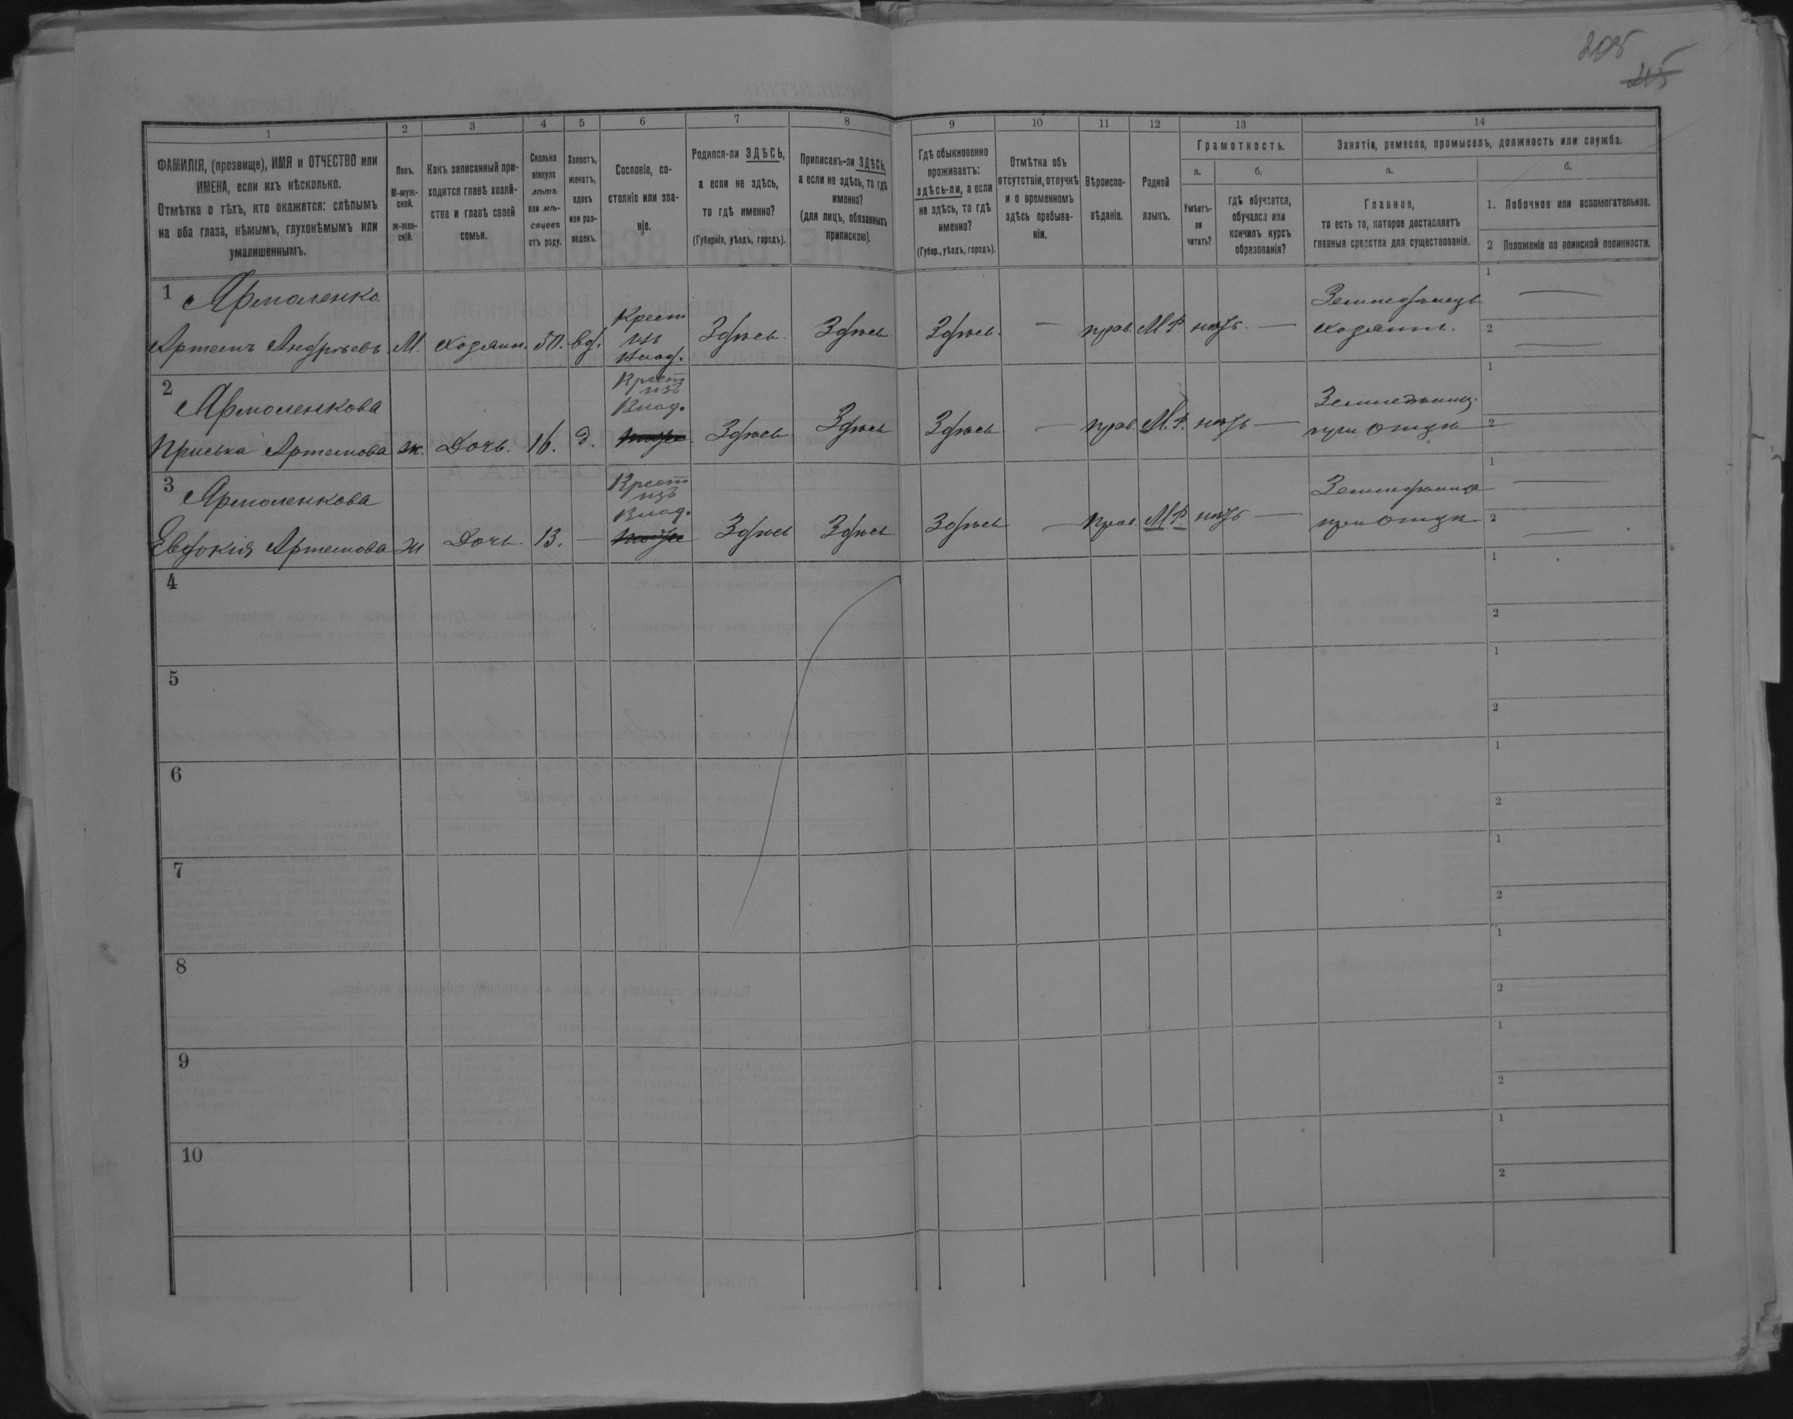 205
215
1
2
3
4
5
6
7
8
9
10
11
12
13
14
ФАМИЛІЯ, (прозвище), ИМЯ и ОТЧЕСТВО или
ИМЕНА, если ихъ нѣсколько.
Отмѣтка о тѣхъ, кто окажется: слѣпымъ
на оба глаза, нѣмымъ, глухонѣмымъ или
умалишеннымъ.
Полъ.
М-муж-
ской.
Ж-жен-
скій.
Какъ записанный при-
ходится главѣ хозяй-
ства и главѣ своей
семьи.
Сколько
минуло
лѣтъ
или мѣ-
сяцевъ
отъ роду.
Холостъ,
женатъ,
вдовъ
или раз-
веденъ.
Сословіе, со-
стояніе или зва-
ніе.
Родился-ли ЗДѢСЬ,
а если не здѣсь,
то гдѣ именно?
(Губернія, уѣздъ, городъ).
Приписанъ-ли ЗДѢСЬ,
а если не здѣсь, то гдѣ
именно?
(для лицъ, обязанныхъ
припискою).
Гдѣ обыкновенно
проживаетъ:
здѣсь-ли, а если
не здѣсь, то гдѣ
именно?
(Губер., уѣздъ, городъ).
Отмѣтка объ
отсутствіи, отлучкѣ
и о временномъ
здѣсь пребыва-
ніи.
Вѣроиспо-
вѣданіе.
Родной
языкъ.
Грамотность.
а.
Умѣетъ-
ли
читать?
б.
гдѣ обучается,
обучался или
кончилъ курсъ
образованія?
Занятіе, ремесло, промыселъ, должность или служба.
а.
Главное,
то есть то, которое доставляетъ
главныя средства для существованія.
б.
1. Побочное или вспомогательное.
2 Положеніе по воинской повинности.
1 Ярмоленко
Артемъ Андреевъ М. хозяин. 50. вд. Крест из Влад. Здѣсь Здѣсь Здѣсь. — прав М.Р. нѣтъ — Земледѣлецъ хозяинъ. 1 — 2 —
2 Ярмоленкова
Приська Артемова ж. Дочь. 16. д. Крест изъ Влад. Здѣсь Здѣсь Здѣсь — прав М.Р. нѣтъ — при отцѣ 1 2
3 Ярмоленкова
Евдокія Артемова ж Дочь 13. — Крест изъ Влад. Здѣсь Здѣсь Здѣсь — прав М.Р. нѣтъ — при отцѣ 1 — 2 —
4 1 2
5 1 2
6 1 2
7 1 2
8 1 2
9 1 2
10 1 2